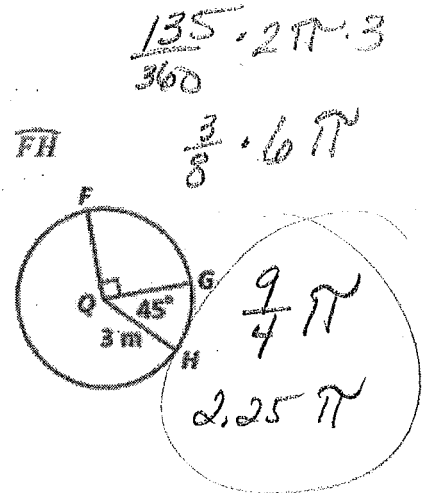 135/360 · 2π·3
F͡H
3/8 · 6π
F
G
Q
45°
3 m
H
9/4 π
2.25 π